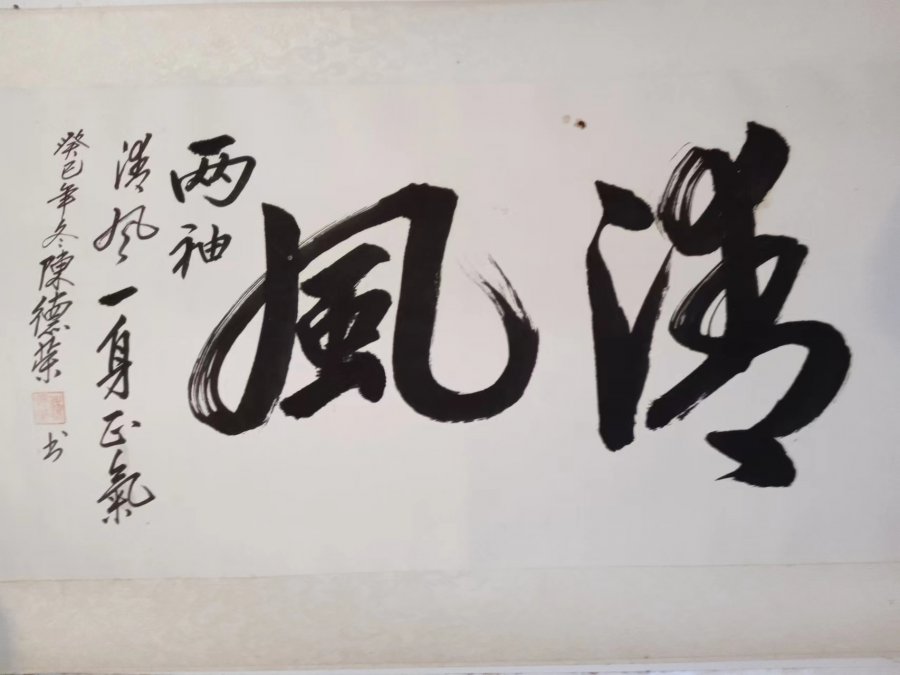 清風
两袖
清风一身正氣
癸巳年冬陳德荣
书